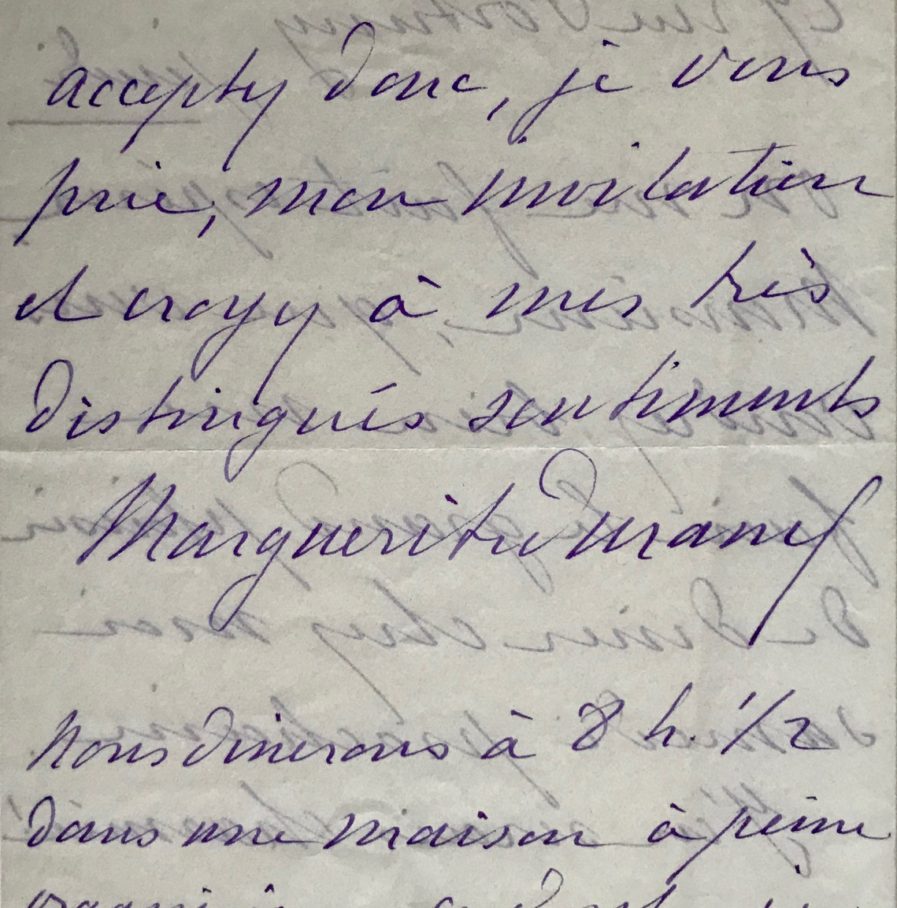 acceptez donc, je vous
prie, mon invitation
et croyez à mes très
distingués sentiments
Marguerite Durand
Nous dinerons à 8 h. 1/2
dans une maison à peine